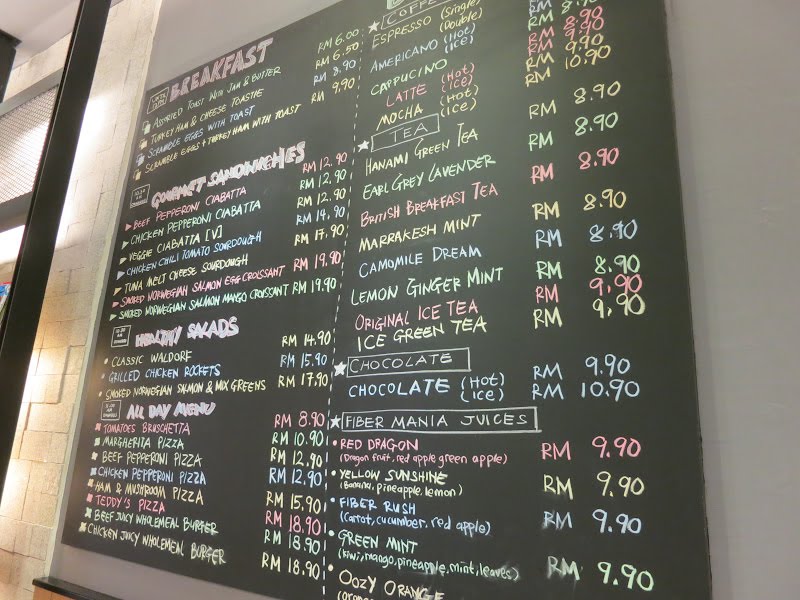 BREAKFAST
ASSORTED TOAST WITH JAM & BUTTER RM 6.00
TURKEY HAM & CHEESE TOASTIE RM 6.50
SCRAMBLE EGGS WITH TOAST RM 8.90
SCRAMBLE EGGS + TURKEY HAM WITH TOAST RM 9.90
GOURMET SANDWICHES
BEEF PEPPERONI CIABATTA RM 12.90
CHICKEN PEPPERONI CIABATTA RM 12.90
VEGGIE CIABATTA [V] RM 12.90
CHICKEN CHILI TOMATO SOURDOUGH RM 14.90
TUNA MELT CHEESE SOURDOUGH RM 17.90
SMOKED NORWEGIAN SALMON EGG CROISSANT RM 19.90
SMOKED NORWEGIAN SALMON MANGO CROISSANT RM 19.90
HEALTHY SALADS
CLASSIC WALDORF RM 14.90
GRILLED CHICKEN ROCKETS RM 15.90
SMOKED NORWEGIAN SALMON & MIX GREENS RM 17.90
ALL DAY MENU
TOMATOES BRUSCHETTA RM 8.90
MARGHERITA PIZZA RM 10.90
BEEF PEPPERONI PIZZA RM 12.90
CHICKEN PEPPERONI PIZZA RM 12.90
HAM & MUSHROOM PIZZA RM 15.90
TEDDY'S PIZZA RM 18.90
BEEF JUICY WHOLEMEAL BURGER RM 18.90
CHICKEN JUICY WHOLEMEAL BURGER RM 18.90
COFFEE
ESPRESSO (Single)
(Double)
AMERICANO (Hot) RM 8.90
(ice) RM 9.90
CAPPUCINO RM 9.90
LATTE (Hot) RM 10.90
(ice)
MOCHA (Hot)
(ice)
TEA
HANAMI GREEN TEA RM 8.90
EARL GREY LAVENDER RM 8.90
BRITISH BREAKFAST TEA RM 8.90
MARRAKESH MINT RM 8.90
CAMOMILE DREAM RM 8.90
LEMON GINGER MINT RM 8.90
ORIGINAL ICE TEA RM 9.90
ICE GREEN TEA RM 9.90
CHOCOLATE
CHOCOLATE (Hot) RM 9.90
(ice) RM 10.90
FIBER MANIA JUICES
RED DRAGON RM 9.90
(Dragon fruit, red apple green apple)
YELLOW SUNSHINE RM 9.90
(Banana, pineapple, lemon)
FIBER RUSH RM 9.90
(Carrot, cucumber, red apple)
GREEN MINT RM 9.90
(kiwi, mango, pineapple, mint, leaves)
OOZY ORANGE